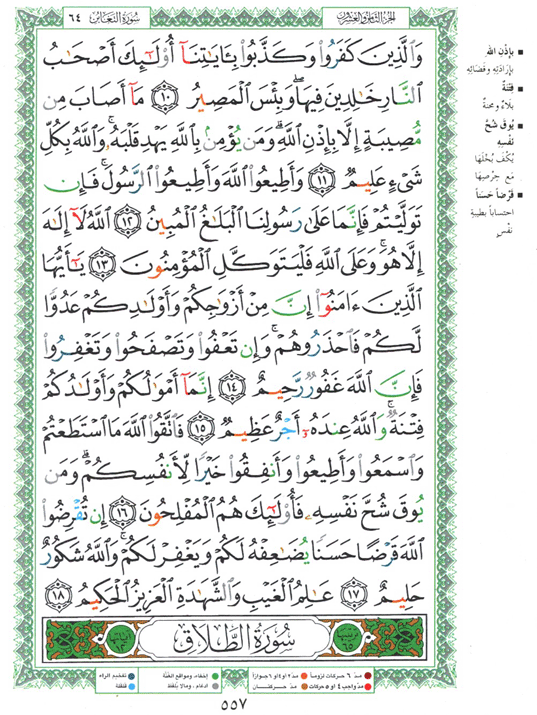 سُورَةُ التَّغَابُن
٦٤
وَالَّذِينَ كَفَرُوا وَكَذَّبُوا بِـَٔايَٰتِنَآ أُو۟لَٰٓئِكَ أَصْحَٰبُ
النَّارِ خَٰلِدِينَ فِيهَا ۖ وَبِئْسَ الْمَصِيرُ ١٠ مَآ أَصَابَ مِن
مُّصِيبَةٍ إِلَّا بِإِذْنِ اللَّهِ ۗ وَمَن يُؤْمِنۢ بِاللَّهِ يَهْدِ قَلْبَهُۥ ۚ وَاللَّهُ بِكُلِّ
شَىْءٍ عَلِيمٌ ١١ وَأَطِيعُوا اللَّهَ وَأَطِيعُوا الرَّسُولَ ۚ فَإِن
تَوَلَّيْتُمْ فَإِنَّمَا عَلَىٰ رَسُولِنَا الْبَلَٰغُ الْمُبِينُ ١٢ اللَّهُ لَآ إِلَٰهَ
إِلَّا هُوَ ۚ وَعَلَى اللَّهِ فَلْيَتَوَكَّلِ الْمُؤْمِنُونَ ١٣ يَٰٓأَيُّهَا
الَّذِينَ ءَامَنُوٓا إِنَّ مِنْ أَزْوَٰجِكُمْ وَأَوْلَٰدِكُمْ عَدُوًّا
لَّكُمْ فَاحْذَرُوهُمْ ۚ وَإِن تَعْفُوا وَتَصْفَحُوا وَتَغْفِرُوا
فَإِنَّ اللَّهَ غَفُورٌ رَّحِيمٌ ١٤ إِنَّمَآ أَمْوَٰلُكُمْ وَأَوْلَٰدُكُمْ
فِتْنَةٌ ۚ وَاللَّهُ عِندَهُۥٓ أَجْرٌ عَظِيمٌ ١٥ فَاتَّقُوا اللَّهَ مَا اسْتَطَعْتُمْ
وَاسْمَعُوا وَأَطِيعُوا وَأَنفِقُوا خَيْرًا لِّأَنفُسِكُمْ ۗ وَمَن
يُوقَ شُحَّ نَفْسِهِۦ فَأُو۟لَٰٓئِكَ هُمُ الْمُفْلِحُونَ ١٦ إِن تُقْرِضُوا
اللَّهَ قَرْضًا حَسَنًا يُضَٰعِفْهُ لَكُمْ وَيَغْفِرْ لَكُمْ ۚ وَاللَّهُ شَكُورٌ
حَلِيمٌ ١٧ عَٰلِمُ الْغَيْبِ وَالشَّهَٰدَةِ الْعَزِيزُ الْحَكِيمُ ١٨
سُورَةُ الطَّلَاقِ
بِإِذْنِ اللهِ
بِإِرَادَتِهِ وَقَضَائِهِ
فِتْنَةٌ
بَلَاءٌ وَمِحْنَةٌ
يُوقَ شُحَّ
نَفْسِهِ
يُكْفَ بُخْلَهَا
مَعَ حِرْصِهَا
قَرْضًا حَسَنًا
احتساباً بطيبةِ
نَفْسٍ
مدّ ٦ حركات لزوماً
مدّ ٢ او ٤ او ٦ جوازاً
إخفاء، ومواقع الغُنَّة
تفخيم الراء
مدّ واجب ٤ او ٥ حركات
مدّ حركتان
ادغام، ومالا يُلفظ
قلقلة
٥٥٧